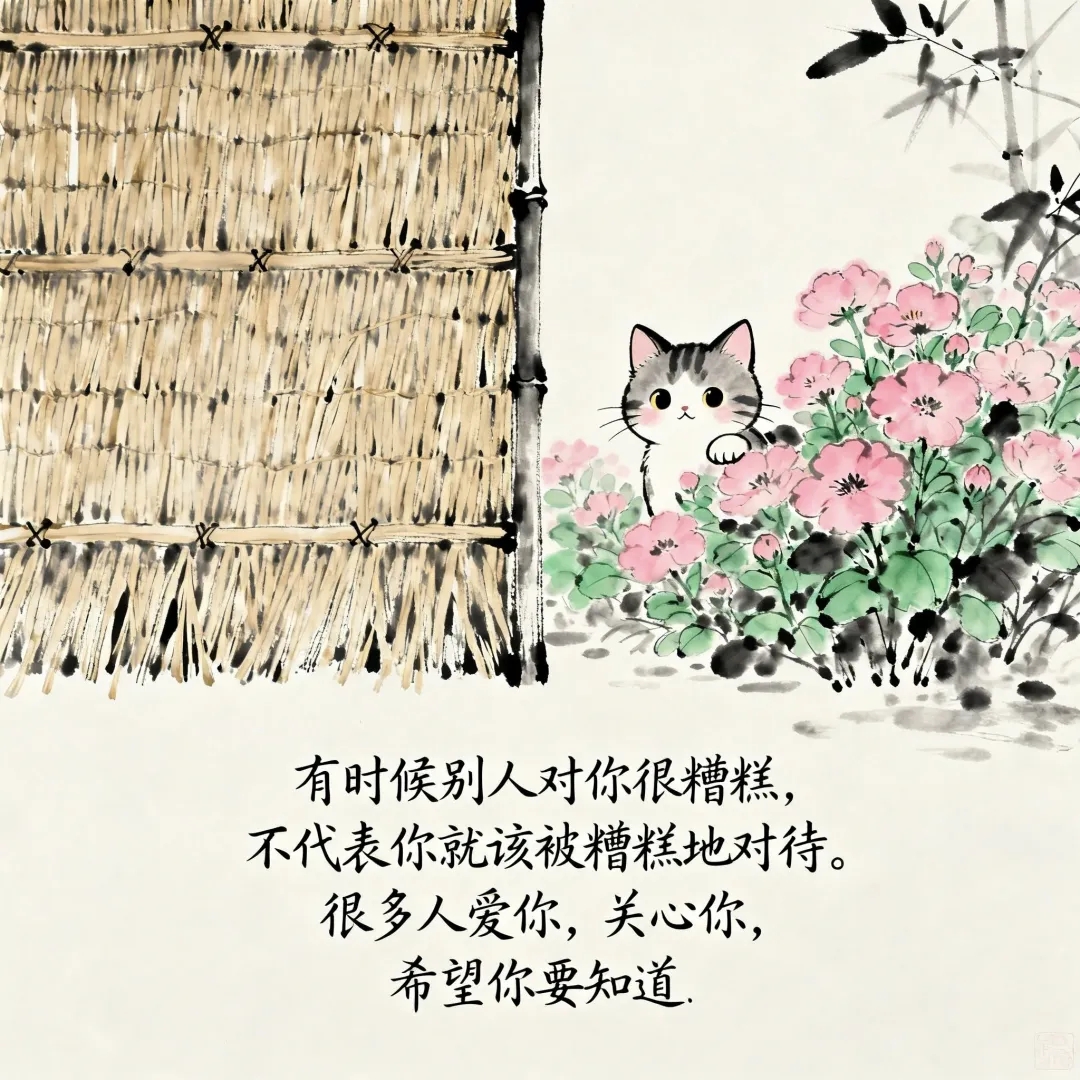 有时候别人对你很糟糕，
不代表你就该被糟糕地对待。
很多人爱你，关心你，
希望你要知道.